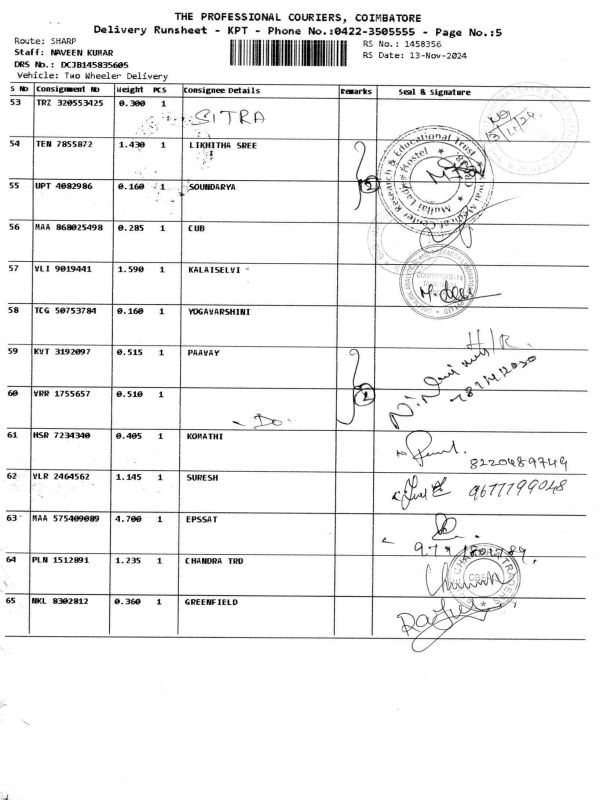 THE PROFESSIONAL COURIERS, COIMBATORE
Delivery Runsheet - KPT - Phone No.:0422-3505555 - Page No.:5
Route: SHARP
RS No.: 1458356
Staff: NAVEEN KUMAR
RS Date: 13-Nov-2024
DRS No.: DCJB145835605
Vehicle: Two Wheeler Delivery
S No Consignment No Weight PCS Consignee Details Remarks Seal & Signature
53 TRZ 320553425 0.300 1 SITRA
13/11/24
54 TEN 7855872 1.430 1 LIKHITHA SREE
55 UPT 4082986 0.160 1 SOUNDARYA
Research & Educational Trust
Mullai Ladies Hostel
56 MAA 868025498 0.285 1 CUB
57 VLI 9019441 1.590 1 KALAISELVI
58 TCG 50753784 0.160 1 YOGAVARSHINI
59 KVT 3192097 0.515 1 PAAVAY
60 VRR 1755657 0.510 1 - Do -
2
61 HSR 7234340 0.405 1 KOMATHI
8220489749
62 VLR 2464562 1.145 1 SURESH
9677199048
63 MAA 575409089 4.700 1 EPSSAT
64 PLN 1512891 1.235 1 CHANDRA TRD
65 NKL 8302812 0.360 1 GREENFIELD